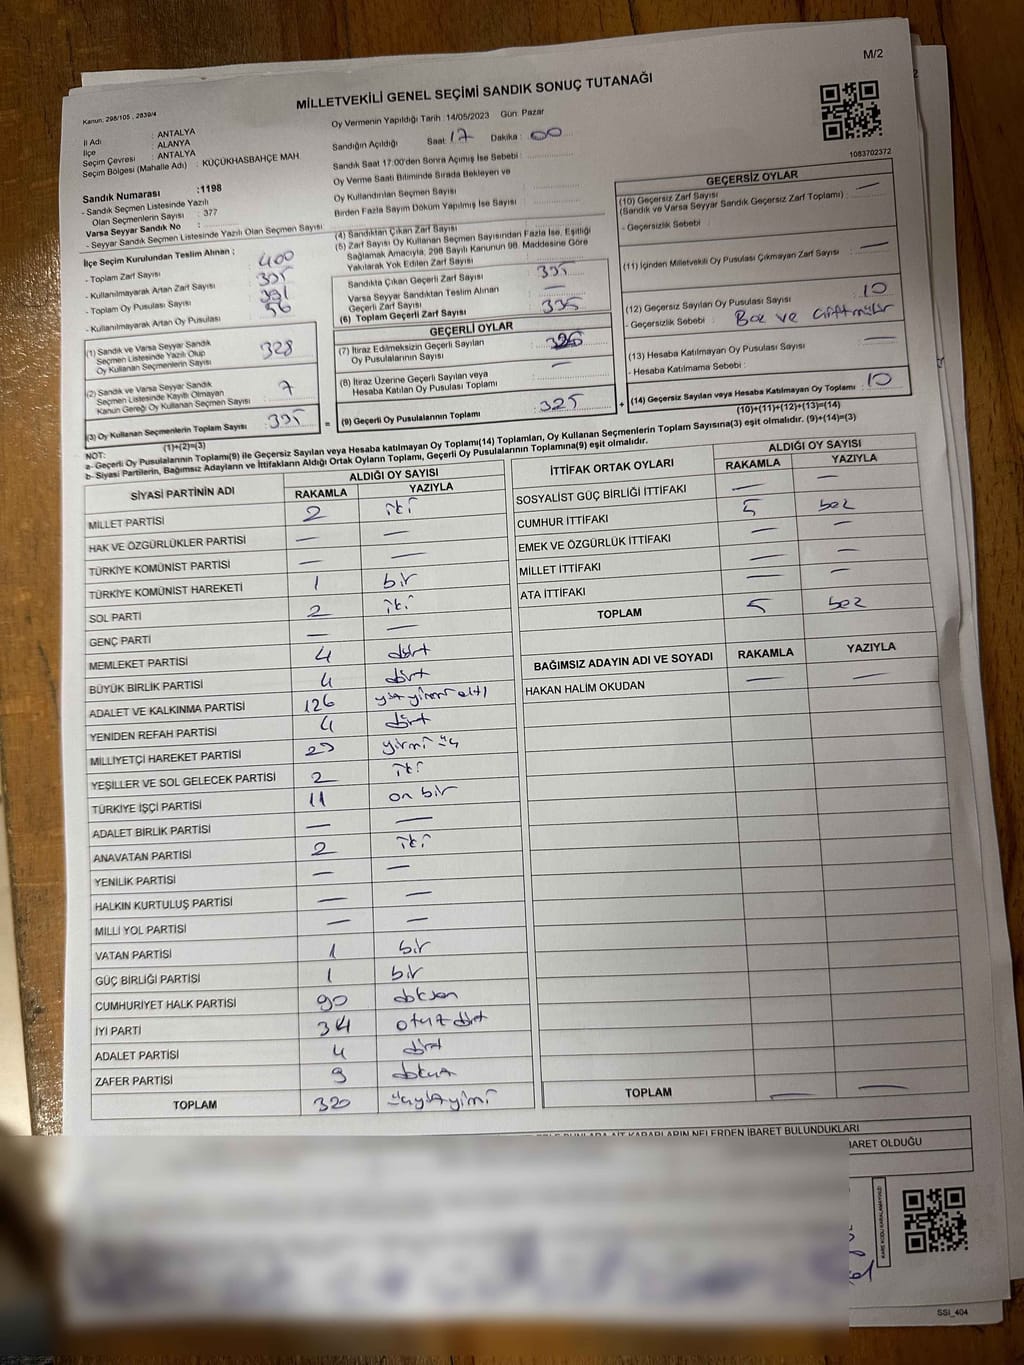 M/2
MİLLETVEKİLİ GENEL SEÇİMİ SANDIK SONUÇ TUTANAĞI
Kanun, 298/105 , 2839/4
İl Adı : ANTALYA
İlçe : ALANYA
Seçim Çevresi : ANTALYA
Seçim Bölgesi (Mahalle Adı) : KÜÇÜKHASBAHÇE MAH
Sandık Numarası :1198
- Sandık Seçmen Listesinde Yazılı
Olan Seçmenlerin Sayısı : 377
Varsa Seyyar Sandık No :
- Seyyar Sandık Seçmen Listesinde Yazılı Olan Seçmen Sayısı:
Oy Vermenin Yapıldığı Tarih :14/05/2023 Gün: Pazar
Sandığın Açıldığı Saat: 17 Dakika : 00
Sandık Saat 17:00'den Sonra Açılmış İse Sebebi :
Oy Verme Saati Bitiminde Sırada Bekleyen ve
Oy Kullandırılan Seçmen Sayısı :
Birden Fazla Sayım Döküm Yapılmış İse Sayısı :
1083702372
İlçe Seçim Kurulundan Teslim Alınan ;
- Toplam Zarf Sayısı : 400
- Kullanılmayarak Artan Zarf Sayısı :
- Toplam Oy Pusulası Sayısı : 391
- Kullanılmayarak Artan Oy Pusulası : 56
(1) Sandık ve Varsa Seyyar Sandık
Seçmen Listesinde Yazılı Olup
Oy Kullanan Seçmenlerin Sayısı : 328
(2) Sandık ve Varsa Seyyar Sandık
Seçmen Listesinde Kayıtlı Olmayan
Kanun Gereği Oy Kullanan Seçmen Sayısı : 7
(3) Oy Kullanan Seçmenlerin Toplam Sayısı : 335
(1)+(2)=(3)
(4) Sandıktan Çıkan Zarf Sayısı
(5) Zarf Sayısı Oy Kullanan Seçmen Sayısından Fazla İse, Eşitliği
Sağlamak Amacıyla, 298 Sayılı Kanunun 98. Maddesine Göre
Yakılarak Yok Edilen Zarf Sayısı :
Sandıkta Çıkan Geçerli Zarf Sayısı : 335
Varsa Seyyar Sandıktan Teslim Alınan
Geçerli Zarf Sayısı : —
(6) Toplam Geçerli Zarf Sayısı : 335
GEÇERLİ OYLAR
(7) İtiraz Edilmeksizin Geçerli Sayılan
Oy Pusulalarının Sayısı :
(8) İtiraz Üzerine Geçerli Sayılan veya
Hesaba Katılan Oy Pusulası Toplamı : —
(9) Geçerli Oy Pusulalarının Toplamı : 325
GEÇERSİZ OYLAR
(10) Geçersiz Zarf Sayısı
(Sandık ve Varsa Seyyar Sandık Geçersiz Zarf Toplamı) : —
- Geçersizlik Sebebi :
(11) İçinden Milletvekili Oy Pusulası Çıkmayan Zarf Sayısı : —
(12) Geçersiz Sayılan Oy Pusulası Sayısı : 10
- Geçersizlik Sebebi : Boz ve
(13) Hesaba Katılmayan Oy Pusulası Sayısı : —
- Hesaba Katılmama Sebebi :
(14) Geçersiz Sayılan veya Hesaba Katılmayan Oy Toplamı : 10
(10)+(11)+(12)+(13)=(14)
NOT:
a- Geçerli Oy Pusulalarının Toplamı(9) ile Geçersiz Sayılan veya Hesaba katılmayan Oy Toplamı(14) Toplamları, Oy Kullanan Seçmenlerin Toplam Sayısına(3) eşit olmalıdır. (9)+(14)=(3)
b- Siyasi Partilerin, Bağımsız Adayların ve İttifakların Aldığı Ortak Oyların Toplamı, Geçerli Oy Pusulalarının Toplamına(9) eşit olmalıdır.
SİYASİ PARTİNİN ADI ALDIĞI OY SAYISI
RAKAMLA YAZIYLA
MİLLET PARTİSİ 2 iki
HAK VE ÖZGÜRLÜKLER PARTİSİ — —
TÜRKİYE KOMÜNİST PARTİSİ — —
TÜRKİYE KOMÜNİST HAREKETİ 1 bir
SOL PARTİ 2 iki
GENÇ PARTİ — —
MEMLEKET PARTİSİ 4 dört
BÜYÜK BİRLİK PARTİSİ 4 dört
ADALET VE KALKINMA PARTİSİ 126 yüz yirmi altı
YENİDEN REFAH PARTİSİ 4 dört
MİLLİYETÇİ HAREKET PARTİSİ 23 yirmi üç
YEŞİLLER VE SOL GELECEK PARTİSİ 2 iki
TÜRKİYE İŞÇİ PARTİSİ 11 on bir
ADALET BİRLİK PARTİSİ — —
ANAVATAN PARTİSİ 2 iki
YENİLİK PARTİSİ — —
HALKIN KURTULUŞ PARTİSİ — —
MİLLİ YOL PARTİSİ — —
VATAN PARTİSİ 1 bir
GÜÇ BİRLİĞİ PARTİSİ 1 bir
CUMHURİYET HALK PARTİSİ 90 doksan
İYİ PARTİ 34 otuz dört
ADALET PARTİSİ 4 dört
ZAFER PARTİSİ 9 dokuz
TOPLAM 320 üçyüzyirmi
İTTİFAK ORTAK OYLARI ALDIĞI OY SAYISI
RAKAMLA YAZIYLA
SOSYALİST GÜÇ BİRLİĞİ İTTİFAKI — —
CUMHUR İTTİFAKI 5 beş
EMEK VE ÖZGÜRLÜK İTTİFAKI — —
MİLLET İTTİFAKI — —
ATA İTTİFAKI — —
TOPLAM 5 beş
BAĞIMSIZ ADAYIN ADI VE SOYADI RAKAMLA YAZIYLA
HAKAN HALİM OKUDAN — —
TOPLAM — —
KARARLARIN NELERDEN İBARET BULUNDUKLARI
İBARET OLDUĞU
KARE KODU KARALAMAYINIZ!
SSİ_404